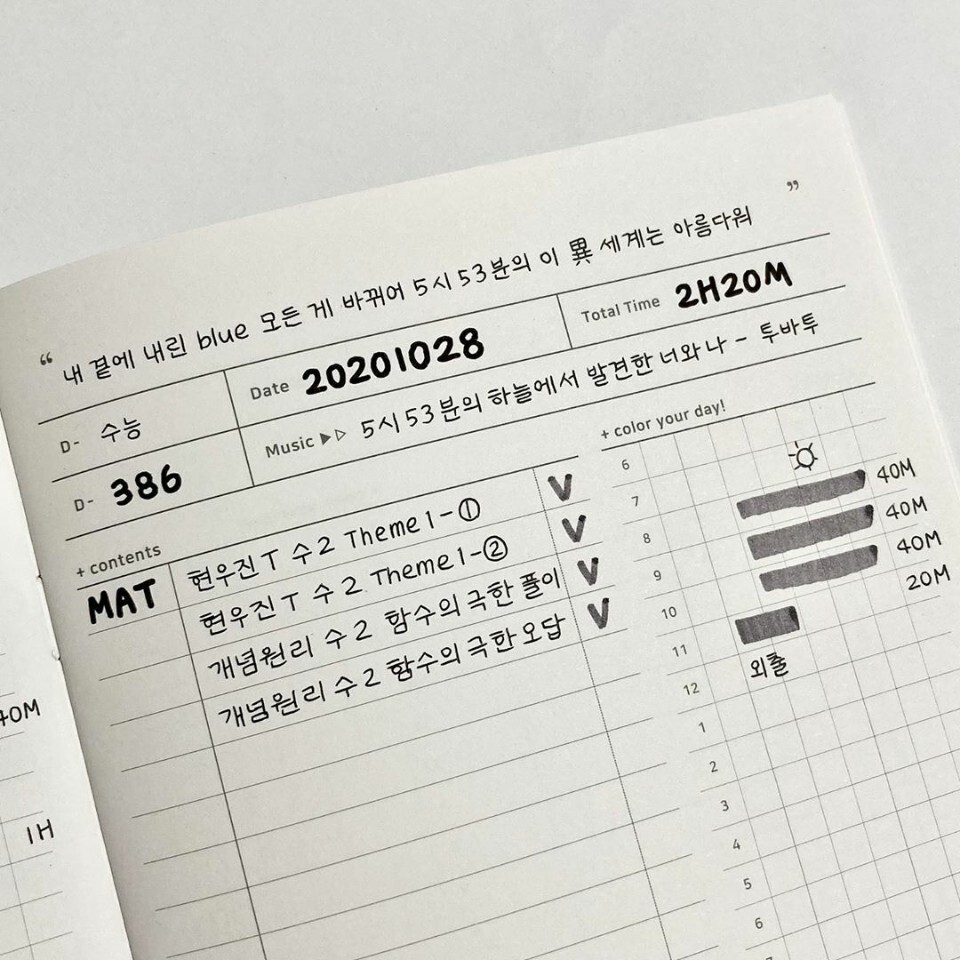 “ 내 곁에 내린 blue 모든 게 바뀌어 5시 53분의 이 異 세계는 아름다워 ”
D- 수능
Date 20201028
Total Time 2H20M
D- 386
Music ▶▷ 5시 53분의 하늘에서 발견한 너와 나 - 투바투
+ contents
+ color your day!
MAT 현우진T 수2 Theme 1-① V
현우진T 수2 Theme 1-② V
개념원리 수2 함수의 극한 풀이 V
개념원리 수2 함수의 극한 오답 V
6
7 40M
8 40M
9 40M
10 20M
11 외출
12
1
2
3
4
5
6
40M
1H